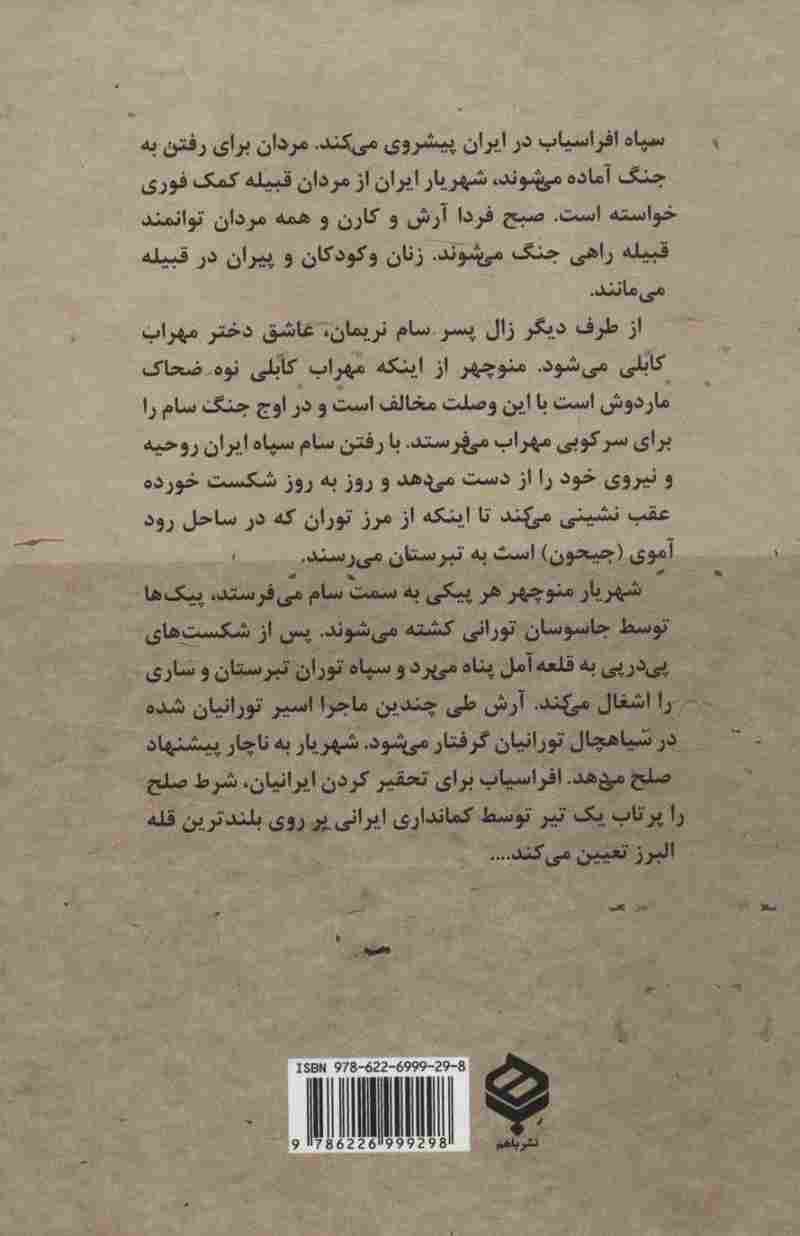 سپاه افراسیاب در ایران پیشروی می‌کند. مردان برای رفتن به
جنگ آماده می‌شوند، شهریار ایران از مردان قبیله کمک فوری
خواسته است. صبح فردا آرش و کارن و همه مردان توانمند
قبیله راهی جنگ می‌شوند. زنان وکودکان و پیران در قبیله
می‌مانند.
از طرف دیگر زال پسر سام نریمان، عاشق دختر مهراب
کابلی می‌شود. منوچهر از اینکه مهراب کابلی نوه ضحاک
ماردوش است با این وصلت مخالف است و در اوج جنگ سام را
برای سرکوبی مهراب می‌فرستد. با رفتن سام سپاه ایران روحیه
و نیروی خود را از دست می‌دهد و روز به روز شکست خورده
عقب نشینی می‌کند تا اینکه از مرز توران که در ساحل رود
آموی (جیحون) است به تبرستان می‌رسند.
شهریار منوچهر هر پیکی به سمت سام می‌فرستد، پیک‌ها
توسط جاسوسان تورانی کشته می‌شوند. پس از شکست‌های
پی‌درپی به قلعه آمل پناه می‌برد و سپاه توران تبرستان و ساری
را اشغال می‌کند. آرش طی چندین ماجرا اسیر تورانیان شده
در سیاهچال تورانیان گرفتار می‌شود. شهریار به ناچار پیشنهاد
صلح می‌دهد. افراسیاب برای تحقیر کردن ایرانیان، شرط صلح
را پرتاب یک تیر توسط کمانداری ایرانی بر روی بلندترین قله
البرز تعیین می‌کند....
ISBN 978-622-6999-29-8
9 786226 999298
نشر باهم